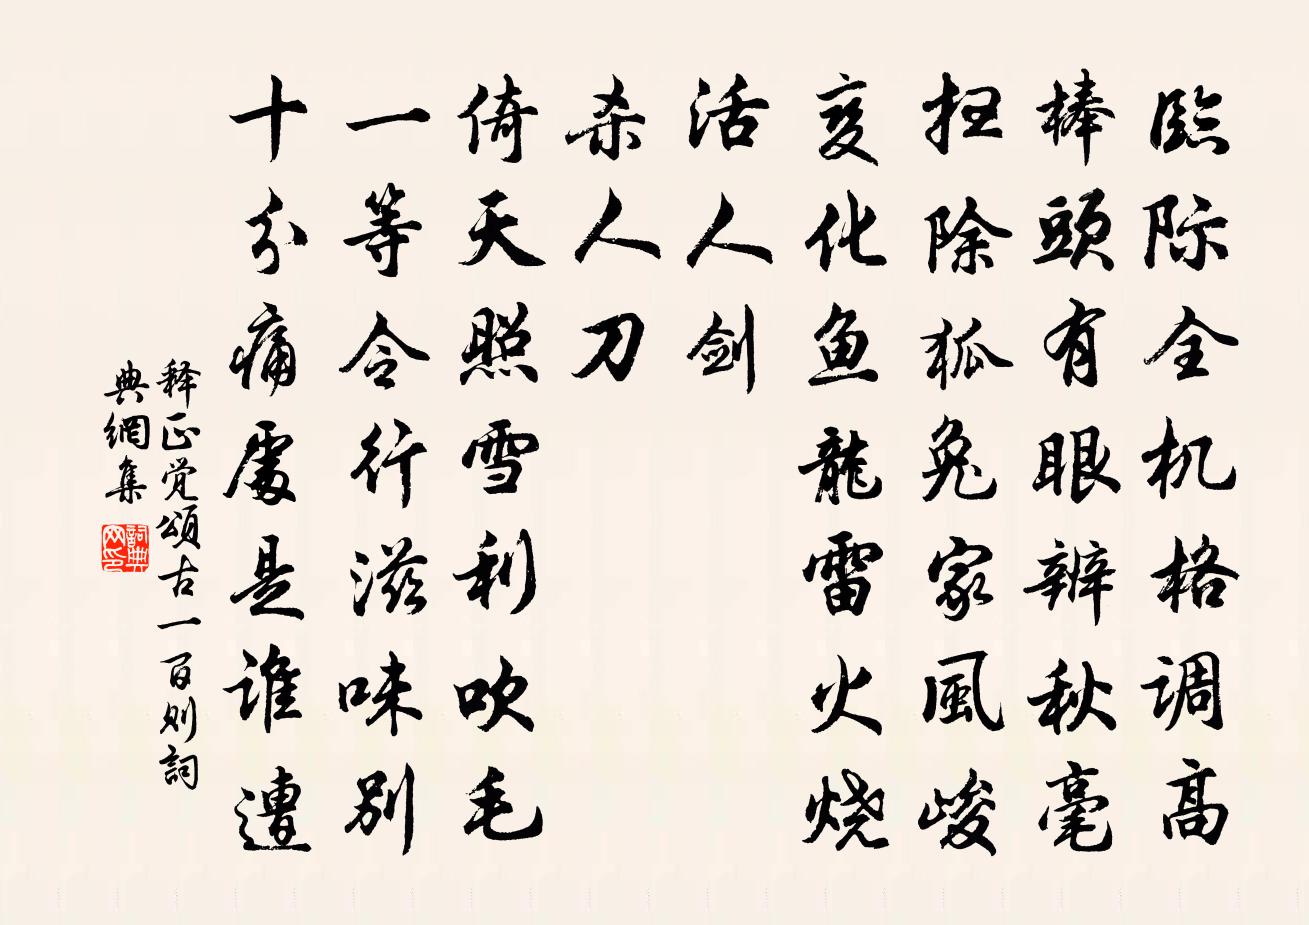 臨际全机格调高
棒頭有眼辨秋毫
扫除狐兔家風峻
变化鱼龍雷火烧
活人剑
杀人刀
倚天照雪利吹毛
一等令行滋味别
十分痛處是谁遭
释正觉頌古一百则詞
典網集
詞典网印